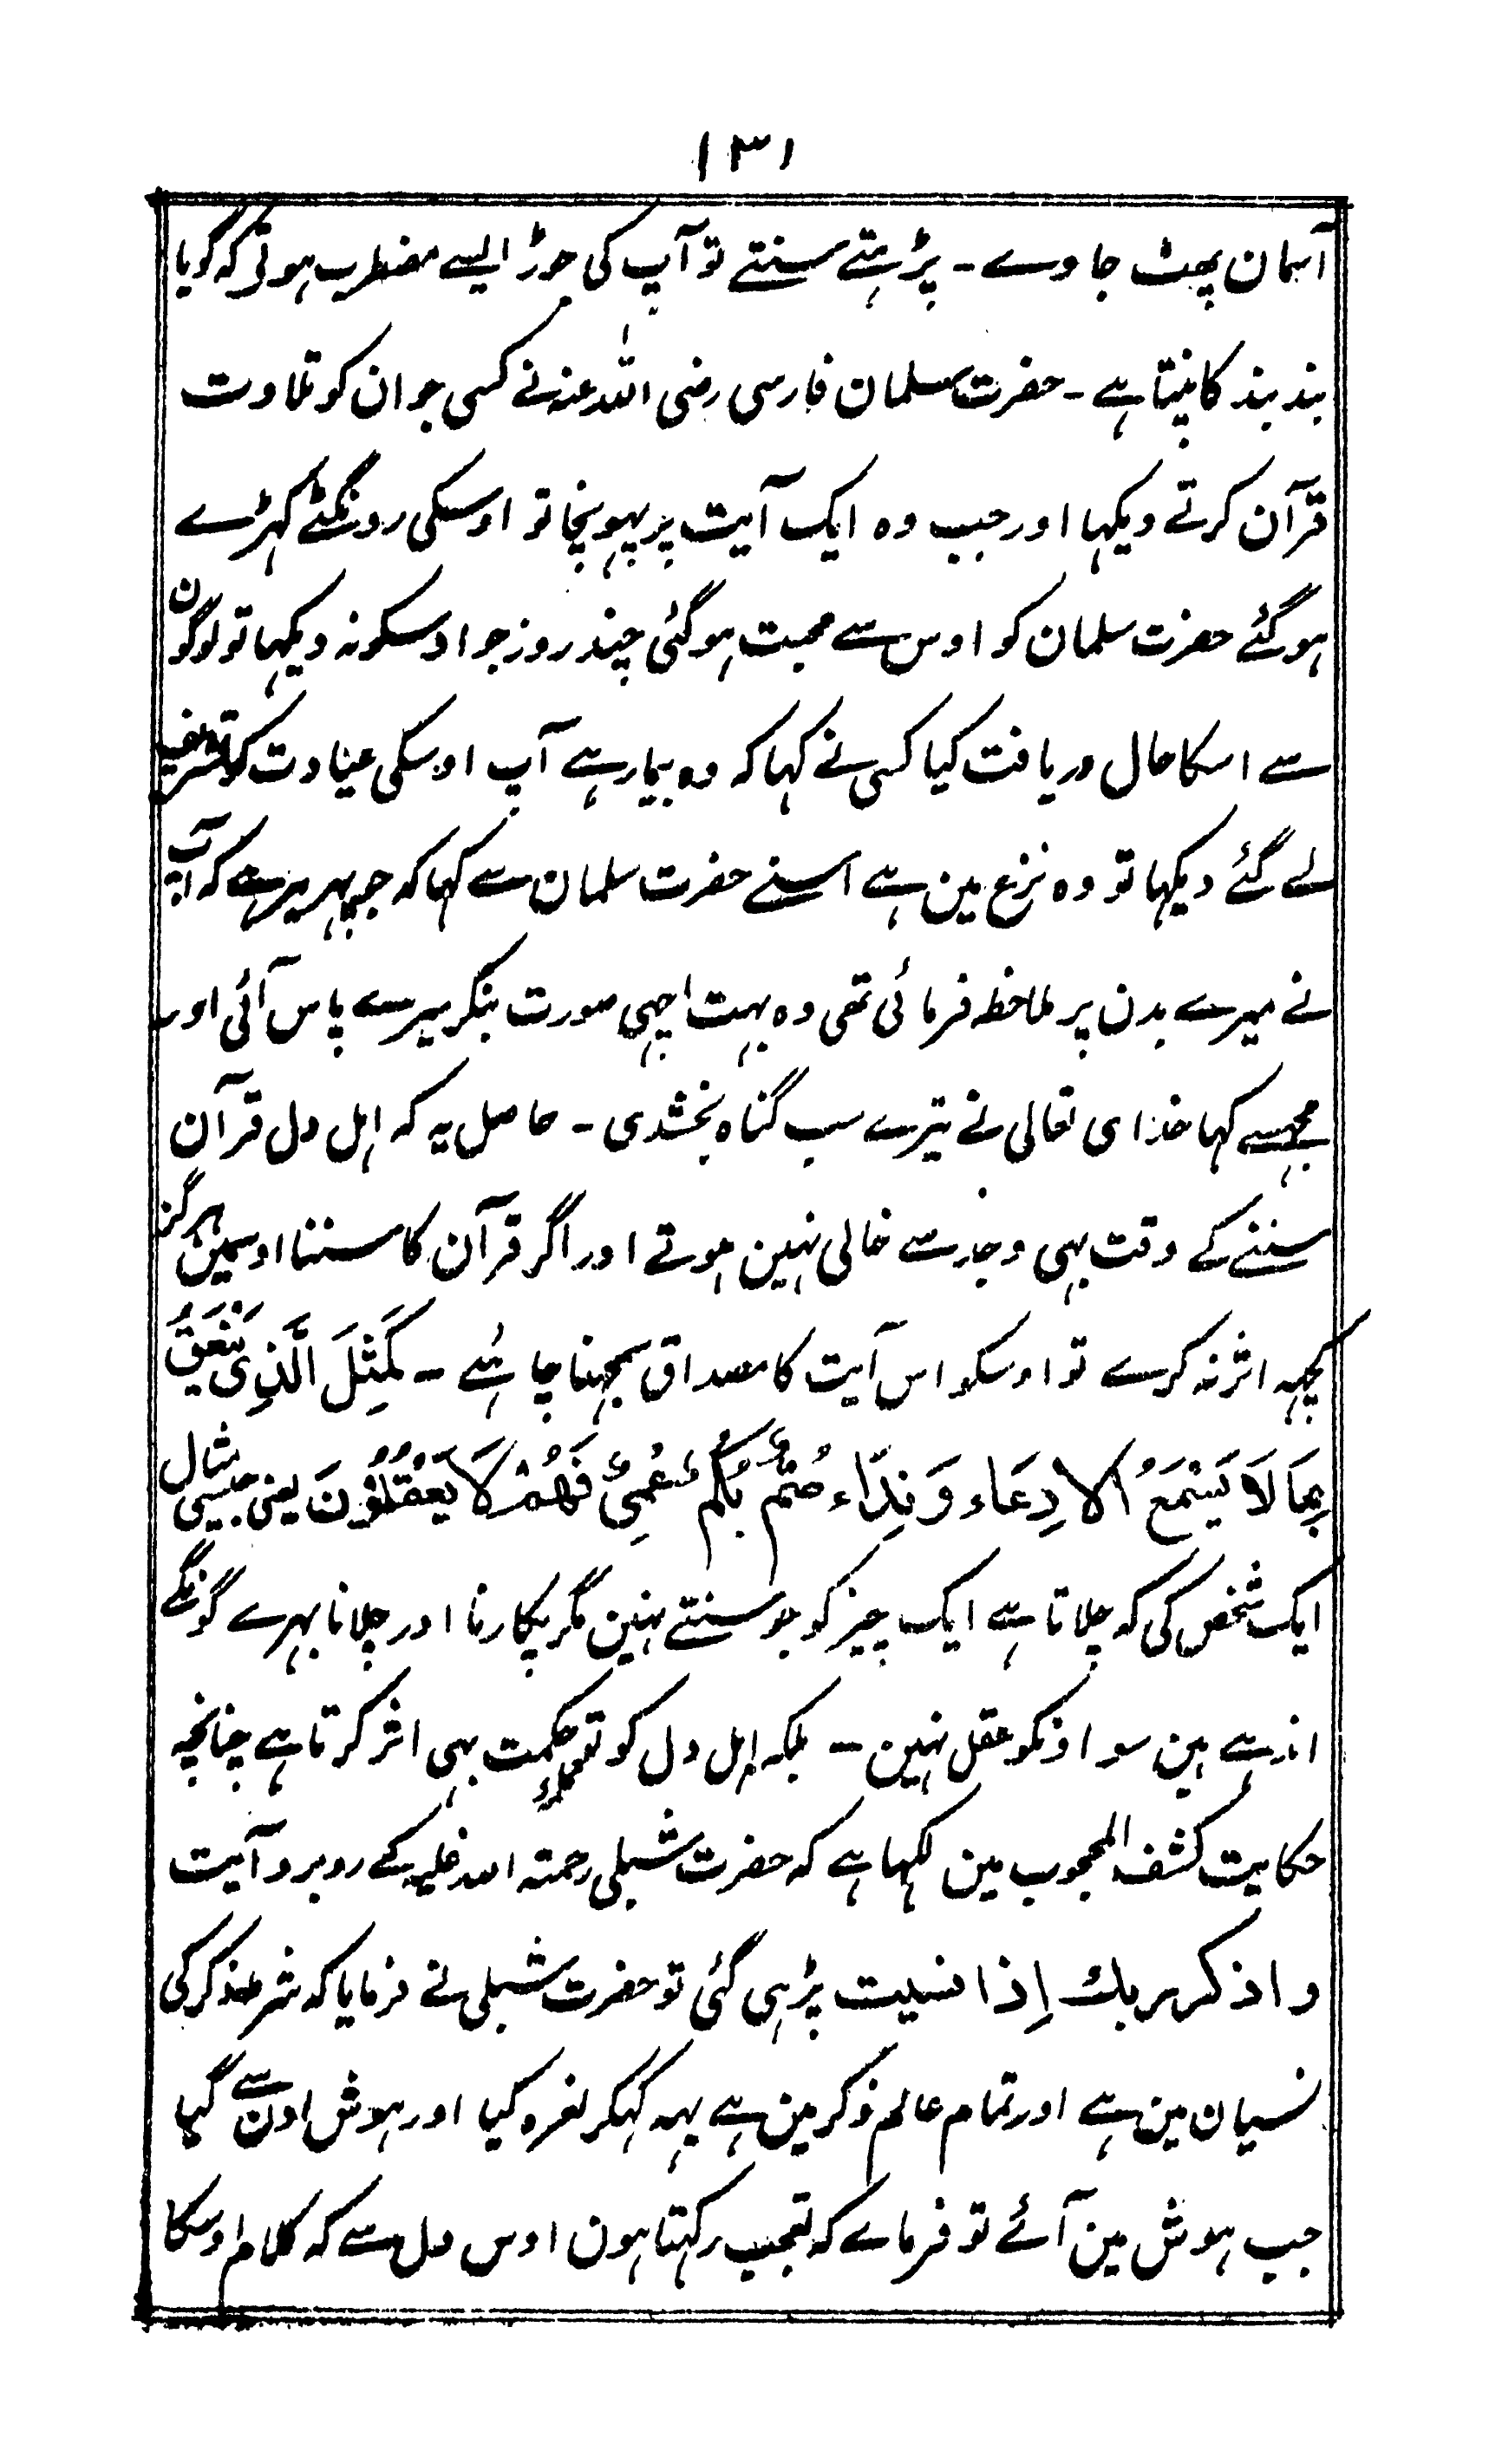 ۱۳۱
آسمان پھٹ جاوے۔ پڑہتے سنتے تو آپ کی جوڑ ایسے مضطرب ہوتی کہ گویا
بند بند کانپتا ہے۔ حضرت سلمان فارسی رضی اللہ عنہ نے کسی جوان کو تلاوت
قرآن کرتے دیکہا اور جب وہ ایک آیت پر پہونچا تو اوسکی رونگٹے کہڑے
ہوگئے حضرت سلمان کو اوس سے محبت ہوگئی چند روز جو اوسکو نہ دیکہا تو لوگون
سے اسکا حال دریافت کیا کسی نے کہا کہ وہ بیمار ہے آپ اوسکی عیادت کو تشریف
لے گئے دیکہا تو وہ نزع مین ہے اسنے حضرت سلمان سے کہا کہ جو پہریرے کہ آپ
نے میرے بدن پر ملاحظہ فرمائی تھی وہ بہت اچہی صورت بنکر میرے پاس آئی اور
مجہسے کہا خدای تعالی نے تیرے سب گناہ بخشدی۔ حاصل یہ کہ اہل دل قرآن
سننے کے وقت بہی وجد سے خالی نہین ہوتے اور اگر قرآن کا سننا اوسمین ہرگز
کچہہ اثر نہ کرے تو اوسکو اس آیت کا مصداق سمجہنا چاہئے۔ كَمَثَلِ الَّذِى يَنْعِقُ
بِمَا لَا يَسْمَعُ الا دِعَاء وَنِدَاء صُمٌّ بُكْمٌ عُمْىٌ فَهُمْ لَا يَعْقِلُوْنَ یعنی جیسی مثال
ایک شخص کی کہ چلاتا ہے ایک چیز کو جو سنتے نہین مگر پکارنا اور چلانا بہرے گونگے
اندہے ہین سو اونکو عقل نہین۔ بلکہ اہل دل کو تو حکمت بہی اثر کرتا ہے چنانچہ
حکایت کشف المحجوب مین لکہا ہے کہ حضرت شبلی رحمتہ اللہ علیہ کے روبرو آیت
واذكر ربك إذا نسيت پڑہی گئی تو حضرت شبلی نے فرمایا کہ شرط ذکر کی
نسیان مین ہے اور تمام عالم ذکر مین ہے یہہ کہکر نعرہ کیا اور ہوش اون سے گیا
جب ہوش مین آئے تو فرماے کہ تعجب رکہتا ہون اوس دل سے کہ کلام اوسکا